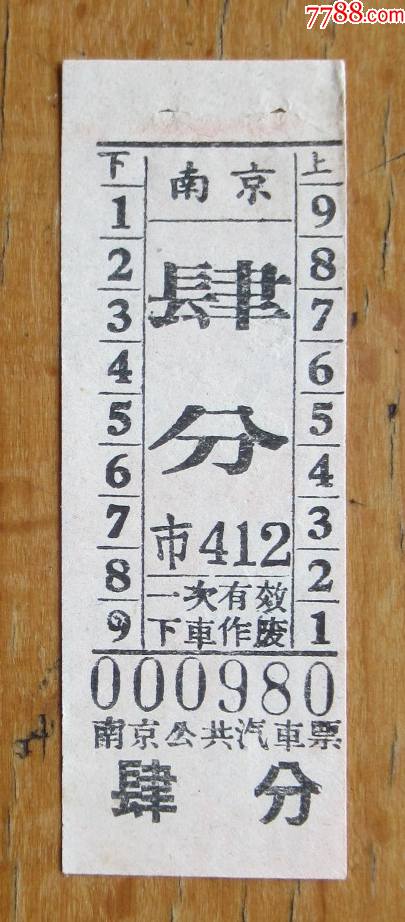 7788.com
下 南京 上
1 9
2 8
3 肆 7
4 6
5 分 5
6 4
7 市412 3
8 一次有效 2
9 下車作废 1
000980
南京公共汽車票
肆 分